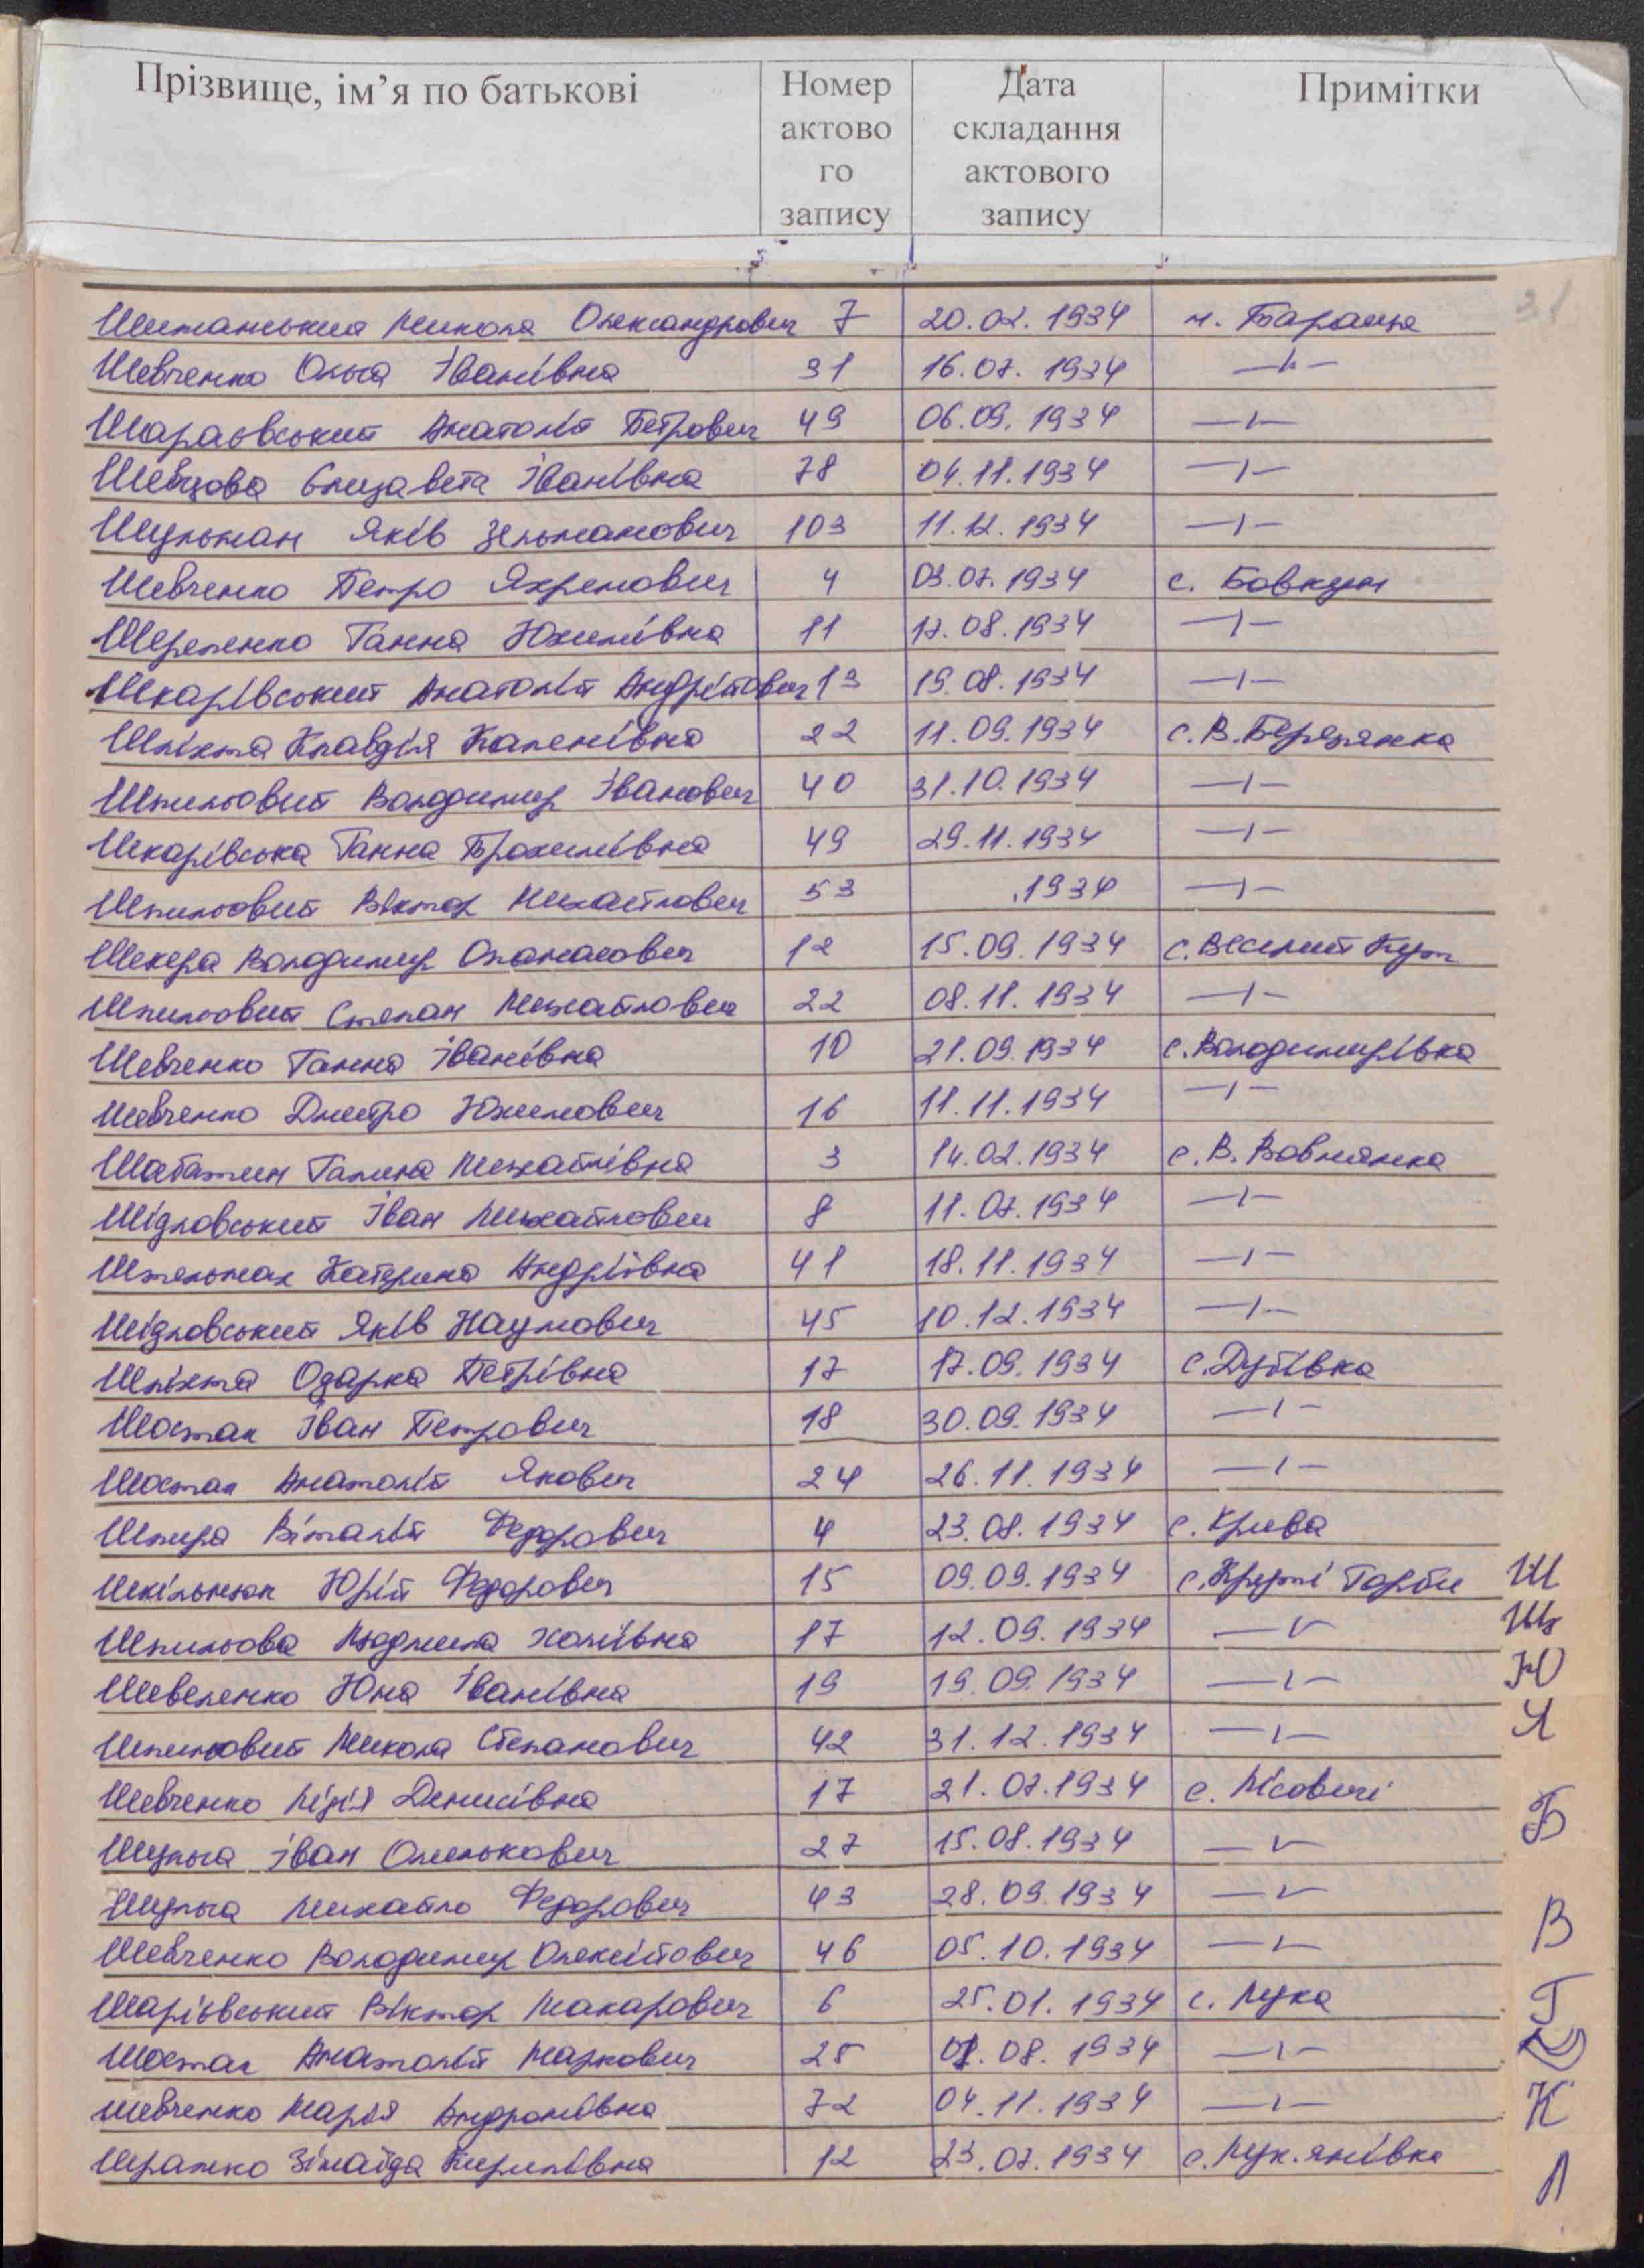 Прізвище, ім’я по батькові Номер актово го запису Дата складання актового запису Примітки
31
Шиманський Микола Олександрович 7 20.02.1934 м. Тараща
Шевченко Ольга Іванівна 31 16.07.1934 —"—
Шараєвський Анатолій Петрович 49 06.09.1934 —"—
Шевцова Єлизавета Іванівна 78 04.11.1934 —"—
Шульман Яків Зельманович 103 11.12.1934 —"—
Шевченко Петро Яхремович 4 03.07.1934 с. Бовкун
Шереленко Ганна Юхимівна 11 17.08.1934 —"—
Шкарівський Анатолій Андрійович 13 19.08.1934 —"—
Шліхта Клавдія Каленівна 22 11.09.1934 с. В. Березянка
Шпильовий Володимир Іванович 40 31.10.1934 —"—
Шкарівська Ганна Трохимівна 49 29.11.1934 —"—
Шпильовий Віктор Михайлович 53 .1934 —"—
Шекера Володимир Опанасович 12 15.09.1934 с. Веселий Кут
Шпильовий Степан Михайлович 22 08.11.1934 —"—
Шевченко Ганна Іванівна 10 21.09.1934 с. Володимирівка
Шевченко Дмитро Юхимович 16 11.11.1934 —"—
Шабатин Галина Михайлівна 3 14.02.1934 с. В. Вовнянка
Шідловський Іван Михайлович 8 11.07.1934 —"—
Штельмах Катерина Андріївна 41 18.11.1934 —"—
Шідловський Яків Наумович 45 10.12.1934 —"—
Шліхта Одарка Петрівна 17 17.09.1934 с. Дубівка
Шостак Іван Петрович 18 30.09.1934 —"—
Шостак Анатолій Якович 24 26.11.1934 —"—
Шпира Віталій Федорович 4 23.08.1934 с. Крива
Шкільнюк Юрій Федорович 15 09.09.1934 с. Круті Горби Ш
Шпильова Людмила Холівна 17 12.09.1934 —"— Щ
Шевеленко Юна Іванівна 19 19.09.1934 —"— Ю
Шпильовий Микола Степанович 42 31.12.1934 —"— Я
Шевченко Лідія Денисівна 17 21.07.1934 с. Лісовичі
Шульга Іван Омелькович 27 15.08.1934 —"— Б
Шульга Михайло Федорович 43 28.09.1934 —"—
Шевченко Володимир Олексійович 46 05.10.1934 —"— В
Шарієвський Віктор Макарович 6 25.01.1934 с. Лука Г
Шостак Анатолій Маркович 25 01.08.1934 —"—
Шевченко Марія Андронівна 72 04.11.1934 —"— К
Шрамко Зінаїда Кирилівна 12 23.07.1934 с. Лук.янівка Л